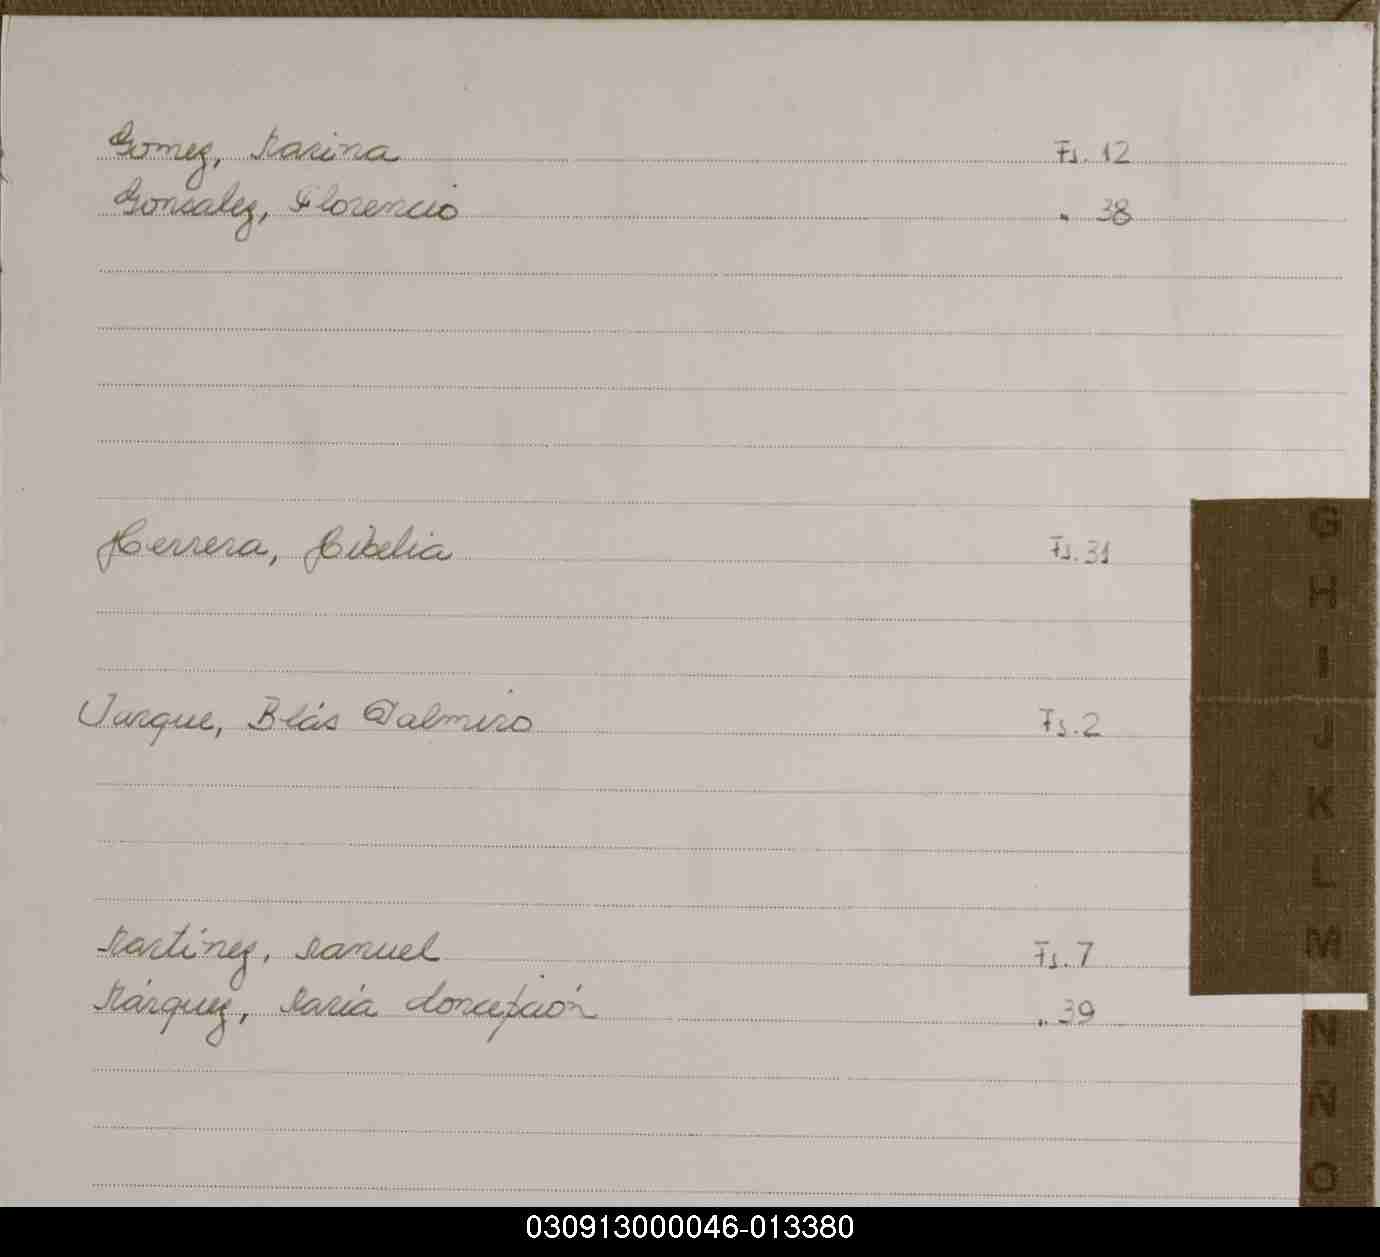 Gomez, Marina Fs. 12
Gonsalez, Florencio " 38
Herrera, Hibelia Fs. 31
Jarque, Blás Dalmiro Fs. 2
Martínez, Manuel Fs. 7
Márquez, María Concepción " 39
G
H
I
J
K
L
M
N
Ñ
O
030913000046-013380